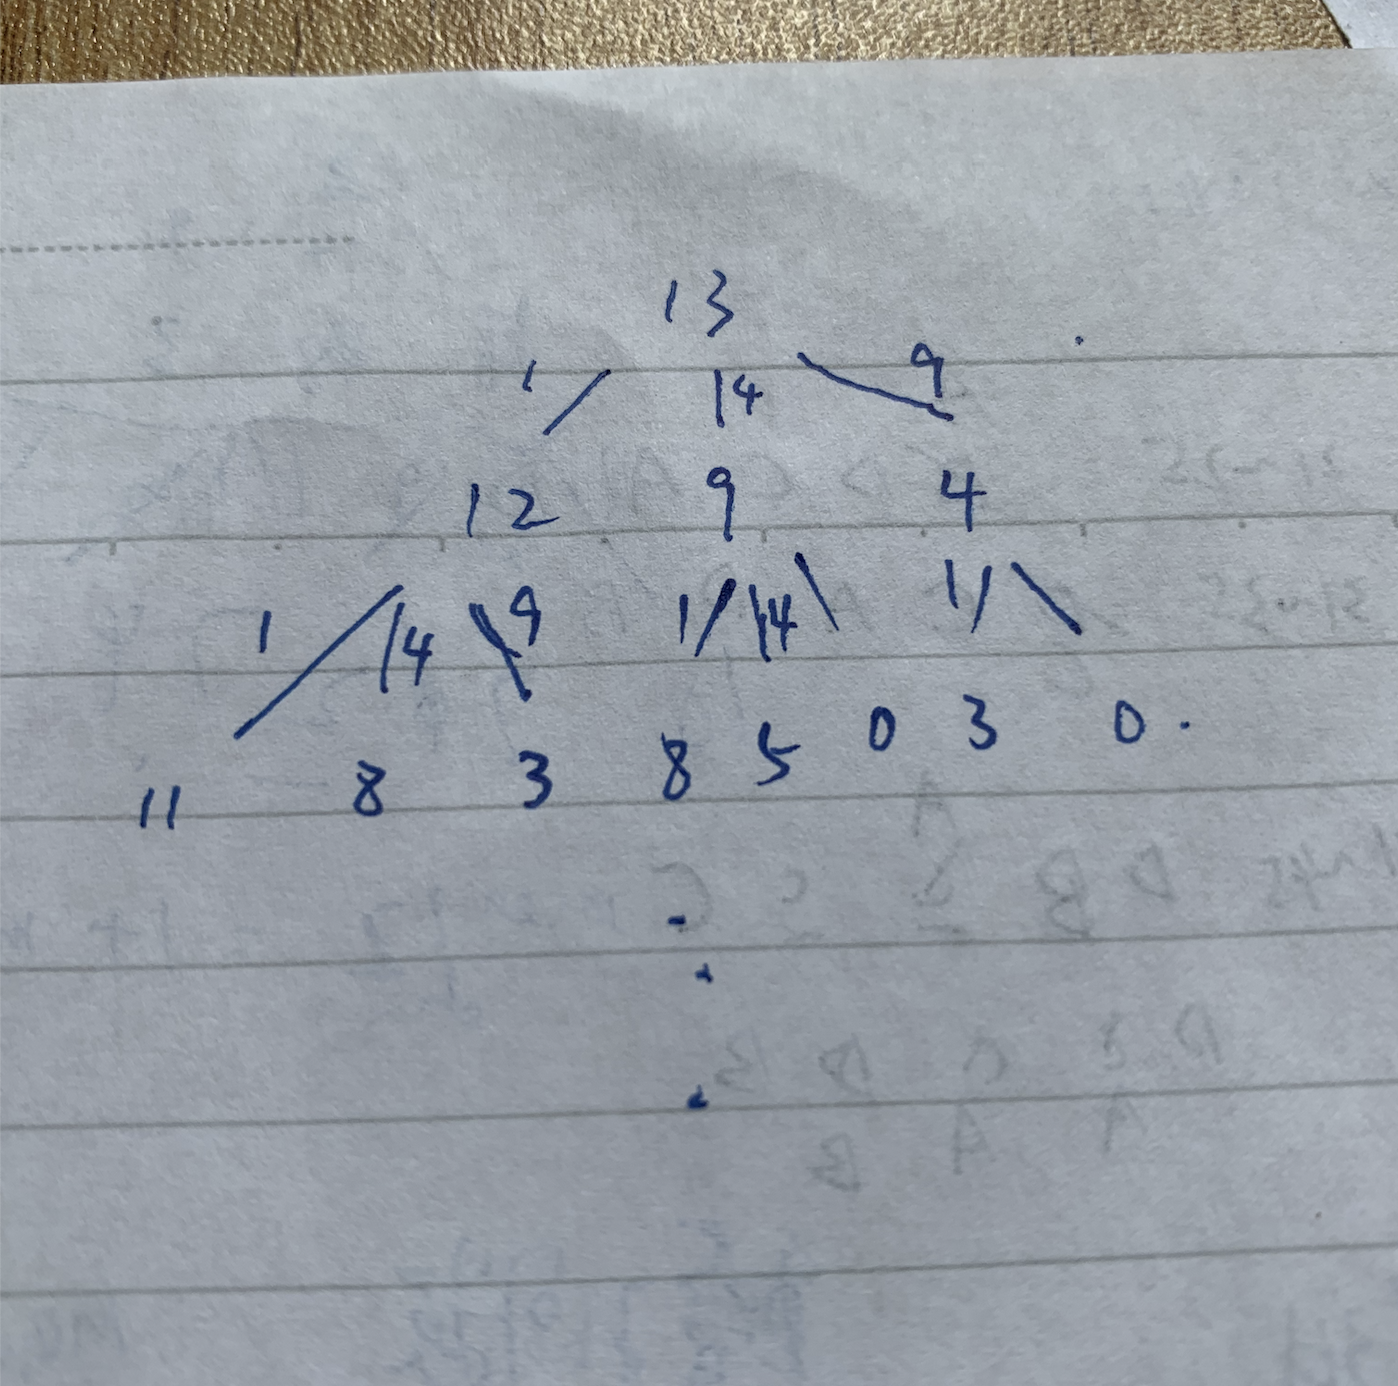 13
1 14 9
12 9 4
1 14 9 1 14 1
11 8 3 8 5 0 3 0.